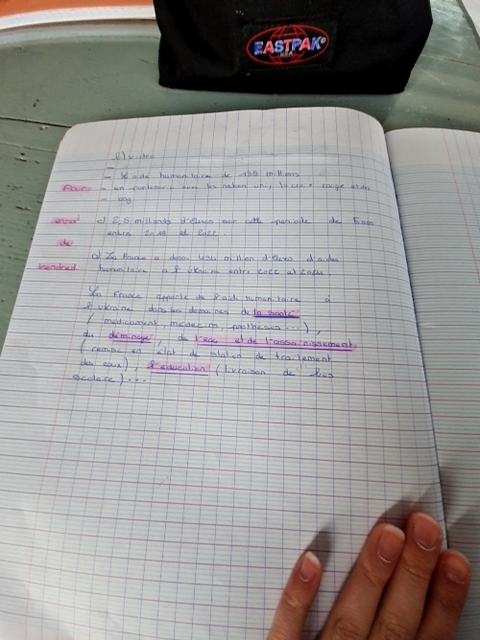 EASTPAK
USA
b) video
- L'aide humanitaire de 188 millions
Pour - en partenari avec les nation uni, la croix rouge et des
- ong
c) 2,5 milliards d'euros sur cette periode de 5 ans
entre 2018 et 2022
de
vendredi d) La France a donn 434 million d'euro d'aide
humanitaire a l'Ukraine entre 2022 et 2024
La France apporte de l'aide humanitaire à
l'ukraine dans les domaines de la santé
(medicament, médecins, prothèses...),
du déminage, de l'eau et de l'assainissement
(remise en état de station de traitement
des eaux), l'éducation (livraison de bus
scolaire)...